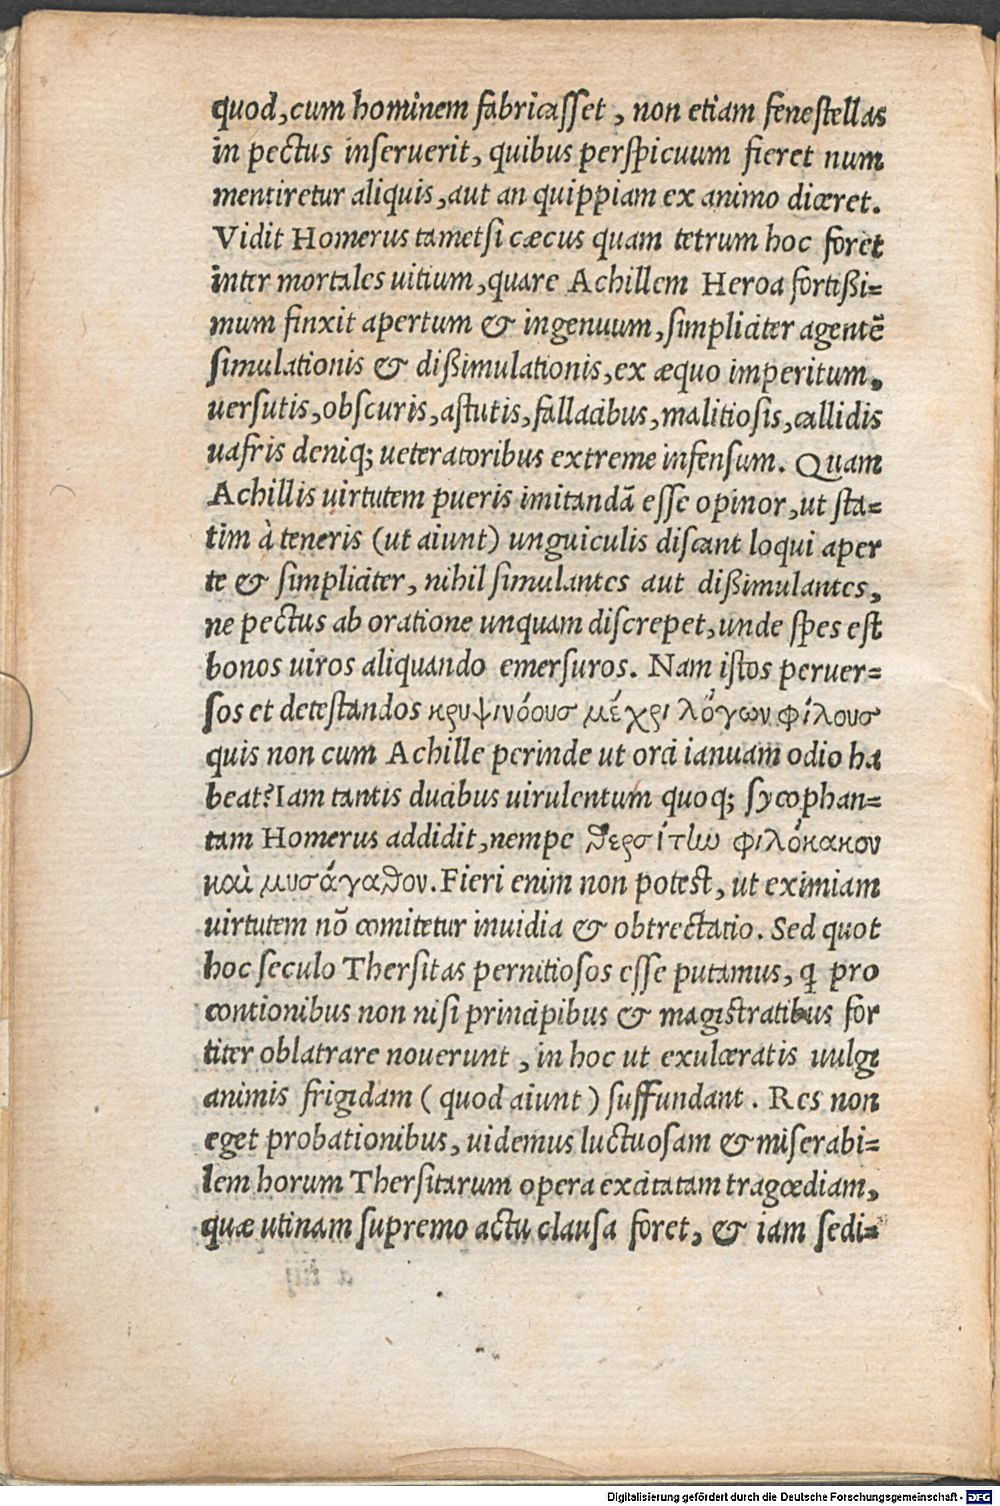 quod,cum hominem fabricasset , non etiam fenestellas
in pectus inseruerit, quibus perspicuum fieret num
mentiretur aliquis,aut an quippiam ex animo diceret.
Vidit Homerus tametsi cæcus quam tetrum hoc foret
inter mortales uitium,quare Achillem Heroa fortißi=
mum finxit apertum & ingenuum,simpliciter agentē
simulationis & dißimulationis,ex æquo imperitum.
uersutis,obscuris,astutis,fallacibus,malitiosis,callidis
uafris deniq; ueteratoribus extreme infensum. Quam
Achillis uirtutem pueris imitandā esse opinor,ut sta=
tim à teneris (ut aiunt) unguiculis discant loqui aper
te & simpliciter, nihil simulantes aut dißimulantes,
ne pectus ab oratione unquam discrepet,unde spes est
bonos uiros aliquando emersuros. Nam istos peruer=
sos et detestandos κρυψινόουσ μέχρι λόγων φίλουσ
quis non cum Achille perinde ut orci ianuam odio ha
beat?Iam tantis ducibus uirulentum quoq; sycophan=
tam Homerus addidit,nempe θερσίτην φιλόκακον
καὶ μυσάγαθον.Fieri enim non potest, ut eximiam
uirtutem nō comitetur inuidia & obtrectatio. Sed quot
hoc seculo Thersitas pernitiosos esse putamus, ꝗ pro
contionibus non nisi principibus & magistratibus for
titer oblatrare nouerunt , in hoc ut exulceratis uulgi
animis frigidam ( quod aiunt ) suffundant . Res non
eget probationibus, uidemus luctuosam & miserabi=
lem horum Thersitarum opera excitatam tragœdiam,
quæ utinam supremo actu clausa foret, & iam sedi=
Digitalisierung gefördert durch die Deutsche Forschungsgemeinschaft - DFG